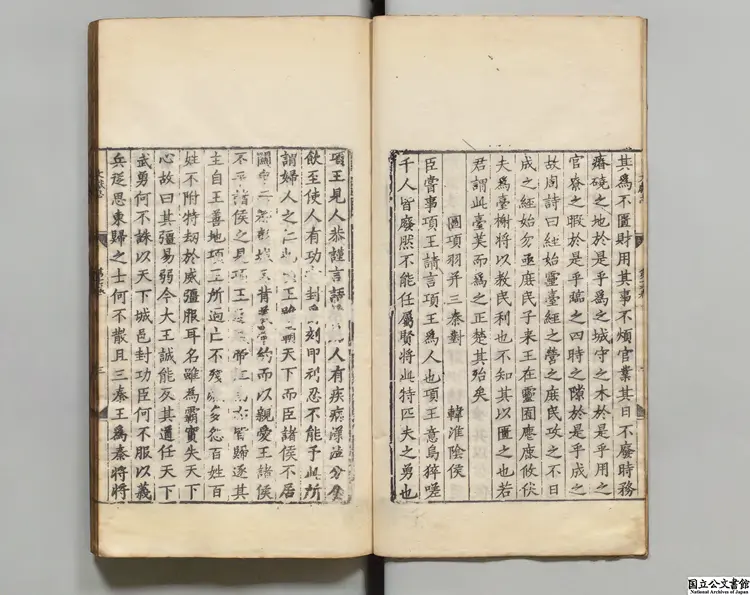 其爲不匱財用其事不煩官業其日不廢時務
瘠磽之地於是乎爲之城守之木於是乎用之
官寮之暇於是乎臨之四時之隙於是乎成之
故周詩曰經始靈臺經之營之庶民攻之不日
成之經始勿亟庶民子來王在靈囿麀鹿攸伏
夫爲臺榭將以教民利也不知其以匱之也若
君謂此臺美而爲之正楚其殆矣
圖項羽并三秦對 韓淮陰侯
臣嘗事項王請言項王爲人也項王意烏猝嗟
千人皆廢然不能任屬賢將此特匹夫之勇也
項王見人恭謹言語人有疾病涕泣分食
飲至使人有功封刻印刓忍不能予此所
謂婦人之仁也王天下而臣諸侯不居
關中彭城又背約而以親愛王諸侯
不平諸侯之見項王江皆歸逐其
主自王善地項王所過亡不殘多怨百姓百
姓不附特劫於威彊服耳名雖爲霸實失天下
心故曰其彊易弱今大王誠能反其道任天下
武勇何不誅以天下城邑封功臣何不服以義
兵從思東歸之士何不散且三秦王爲秦將將
国立公文書館
National Archives of Japan